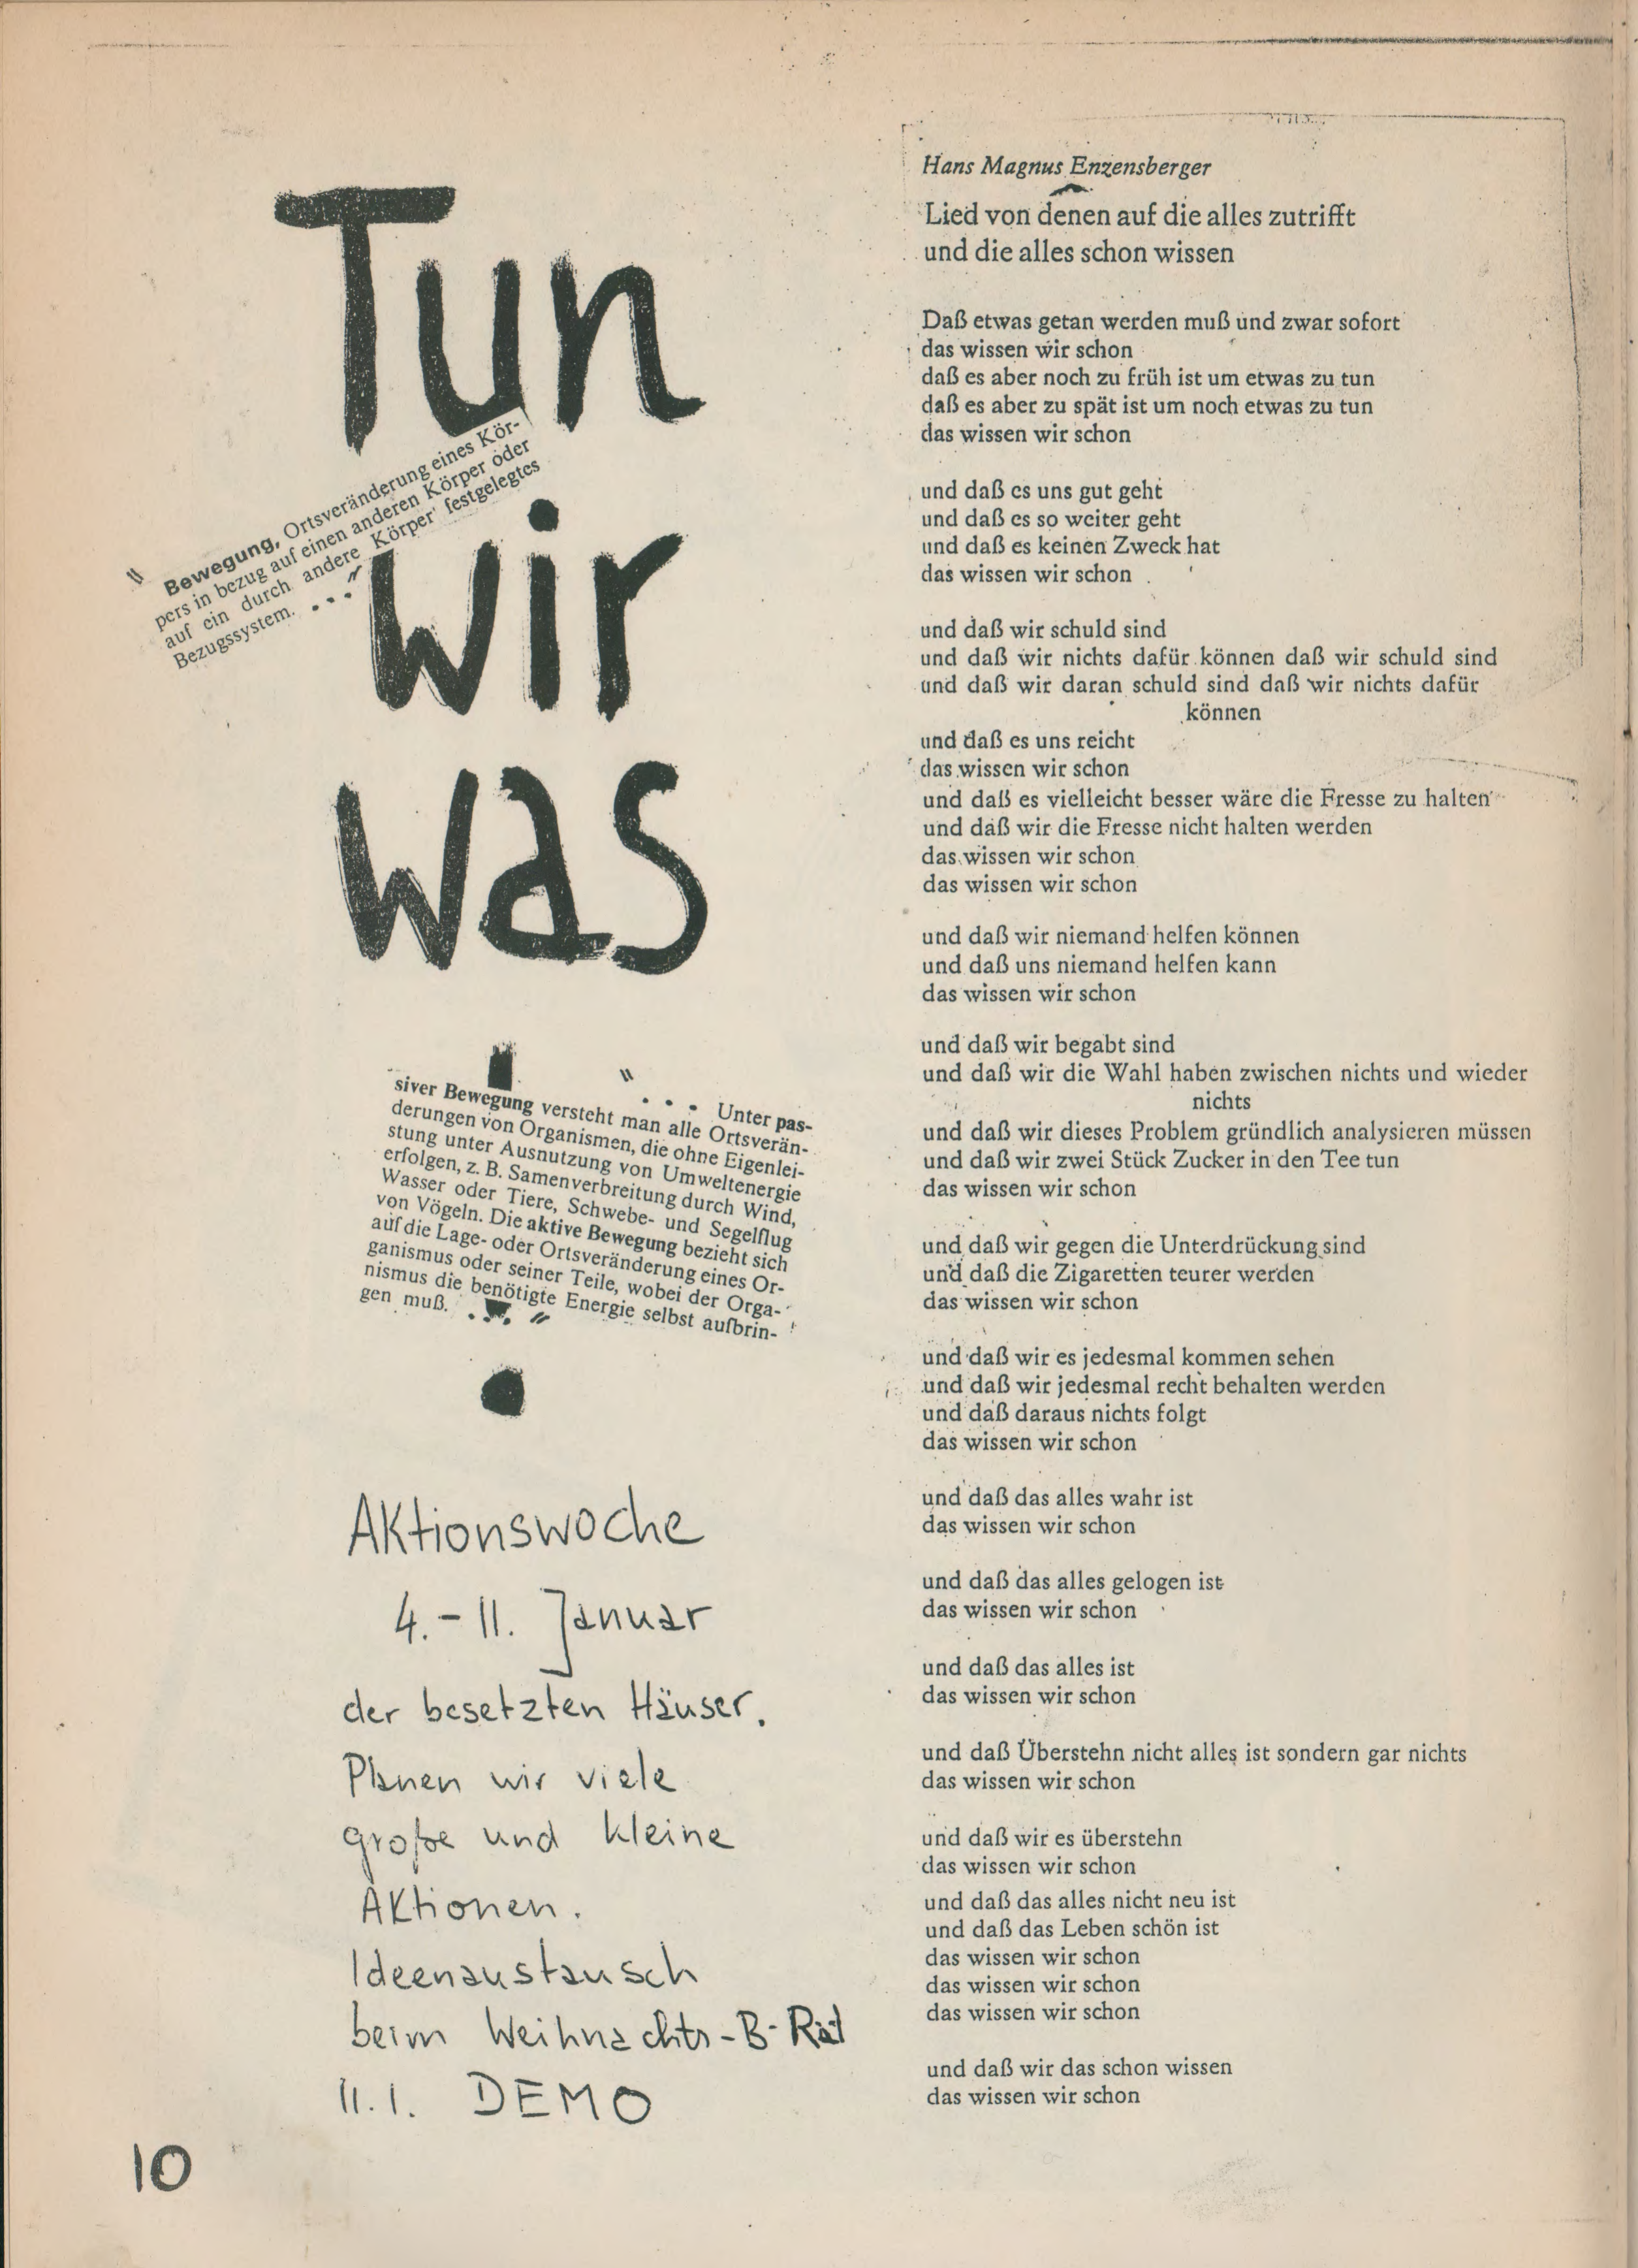 Tun
" Bewegung, Ortsveränderung eines Kör-
pers in bezug auf einen anderen Körper oder
auf ein durch andere Körper festgelegtes
Bezugssystem. ..."
wir
was
!
" ... Unter pas-
siver Bewegung versteht man alle Ortsverän-
derungen von Organismen, die ohne Eigenlei-
stung unter Ausnutzung von Umweltenergie
erfolgen, z. B. Samenverbreitung durch Wind,
Wasser oder Tiere, Schwebe- und Segelflug
von Vögeln. Die aktive Bewegung bezieht sich
auf die Lage- oder Ortsveränderung eines Or-
ganismus oder seiner Teile, wobei der Orga-
nismus die benötigte Energie selbst aufbrin-
gen muß. ..."
Aktionswoche
4.-11. Januar
der besetzten Häuser.
Planen wir viele
große und kleine
Aktionen.
Ideenaustausch
beim Weihnachts-B-Rat
11.1. DEMO
10
Hans Magnus Enzensberger
Lied von denen auf die alles zutrifft
und die alles schon wissen
Daß etwas getan werden muß und zwar sofort
das wissen wir schon
daß es aber noch zu früh ist um etwas zu tun
daß es aber zu spät ist um noch etwas zu tun
das wissen wir schon
und daß es uns gut geht
und daß es so weiter geht
und daß es keinen Zweck hat
das wissen wir schon
und daß wir schuld sind
und daß wir nichts dafür können daß wir schuld sind
und daß wir daran schuld sind daß wir nichts dafür
können
und daß es uns reicht
das wissen wir schon
und daß es vielleicht besser wäre die Fresse zu halten
und daß wir die Fresse nicht halten werden
das wissen wir schon
das wissen wir schon
und daß wir niemand helfen können
und daß uns niemand helfen kann
das wissen wir schon
und daß wir begabt sind
und daß wir die Wahl haben zwischen nichts und wieder
nichts
und daß wir dieses Problem gründlich analysieren müssen
und daß wir zwei Stück Zucker in den Tee tun
das wissen wir schon
und daß wir gegen die Unterdrückung sind
und daß die Zigaretten teurer werden
das wissen wir schon
und daß wir es jedesmal kommen sehen
und daß wir jedesmal recht behalten werden
und daß daraus nichts folgt
das wissen wir schon
und daß das alles wahr ist
das wissen wir schon
und daß das alles gelogen ist
das wissen wir schon
und daß das alles ist
das wissen wir schon
und daß Überstehn nicht alles ist sondern gar nichts
das wissen wir schon
und daß wir es überstehn
das wissen wir schon
und daß das alles nicht neu ist
und daß das Leben schön ist
das wissen wir schon
das wissen wir schon
das wissen wir schon
und daß wir das schon wissen
das wissen wir schon